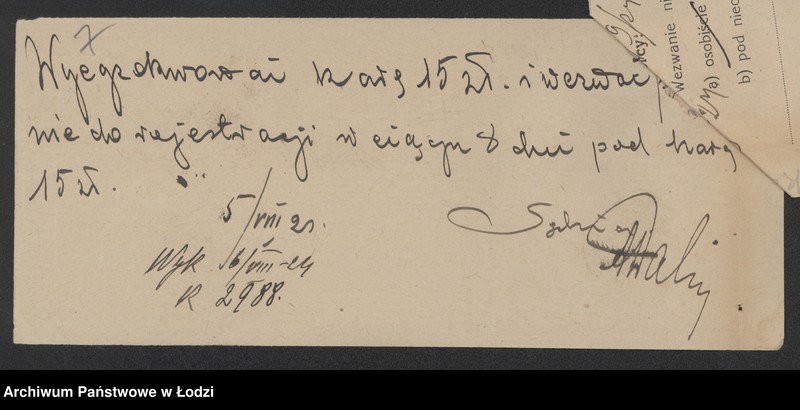 7
Wyegzekwować karę 15 zł. i wezwać p
nie do rejestracji w ciągu 8 dni pod karą
15 zł.
5/VIII 2
Sędzia
Wyk 16/VIII-24
K 2988.
Wezwanie ni
a) osobiście
b) pod niec
Archiwum Państwowe w Łodzi